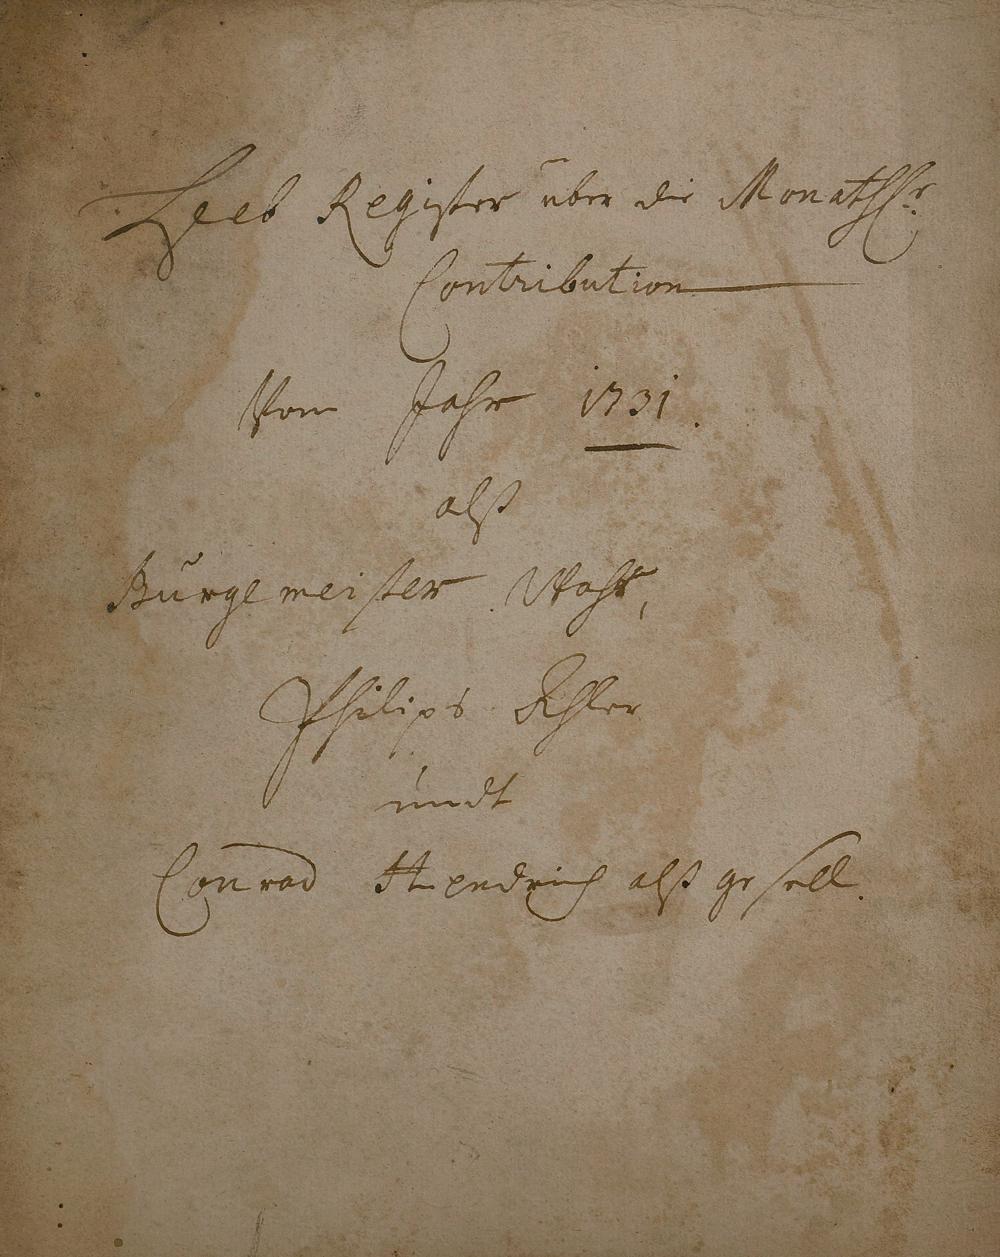 Heeb Register über die Monathl:
Contribution
Vom Jahr 1731.
alß
Bürgemeister Wahr,
Philips Ehler
undt
Conrad Hendrich alß gesell.